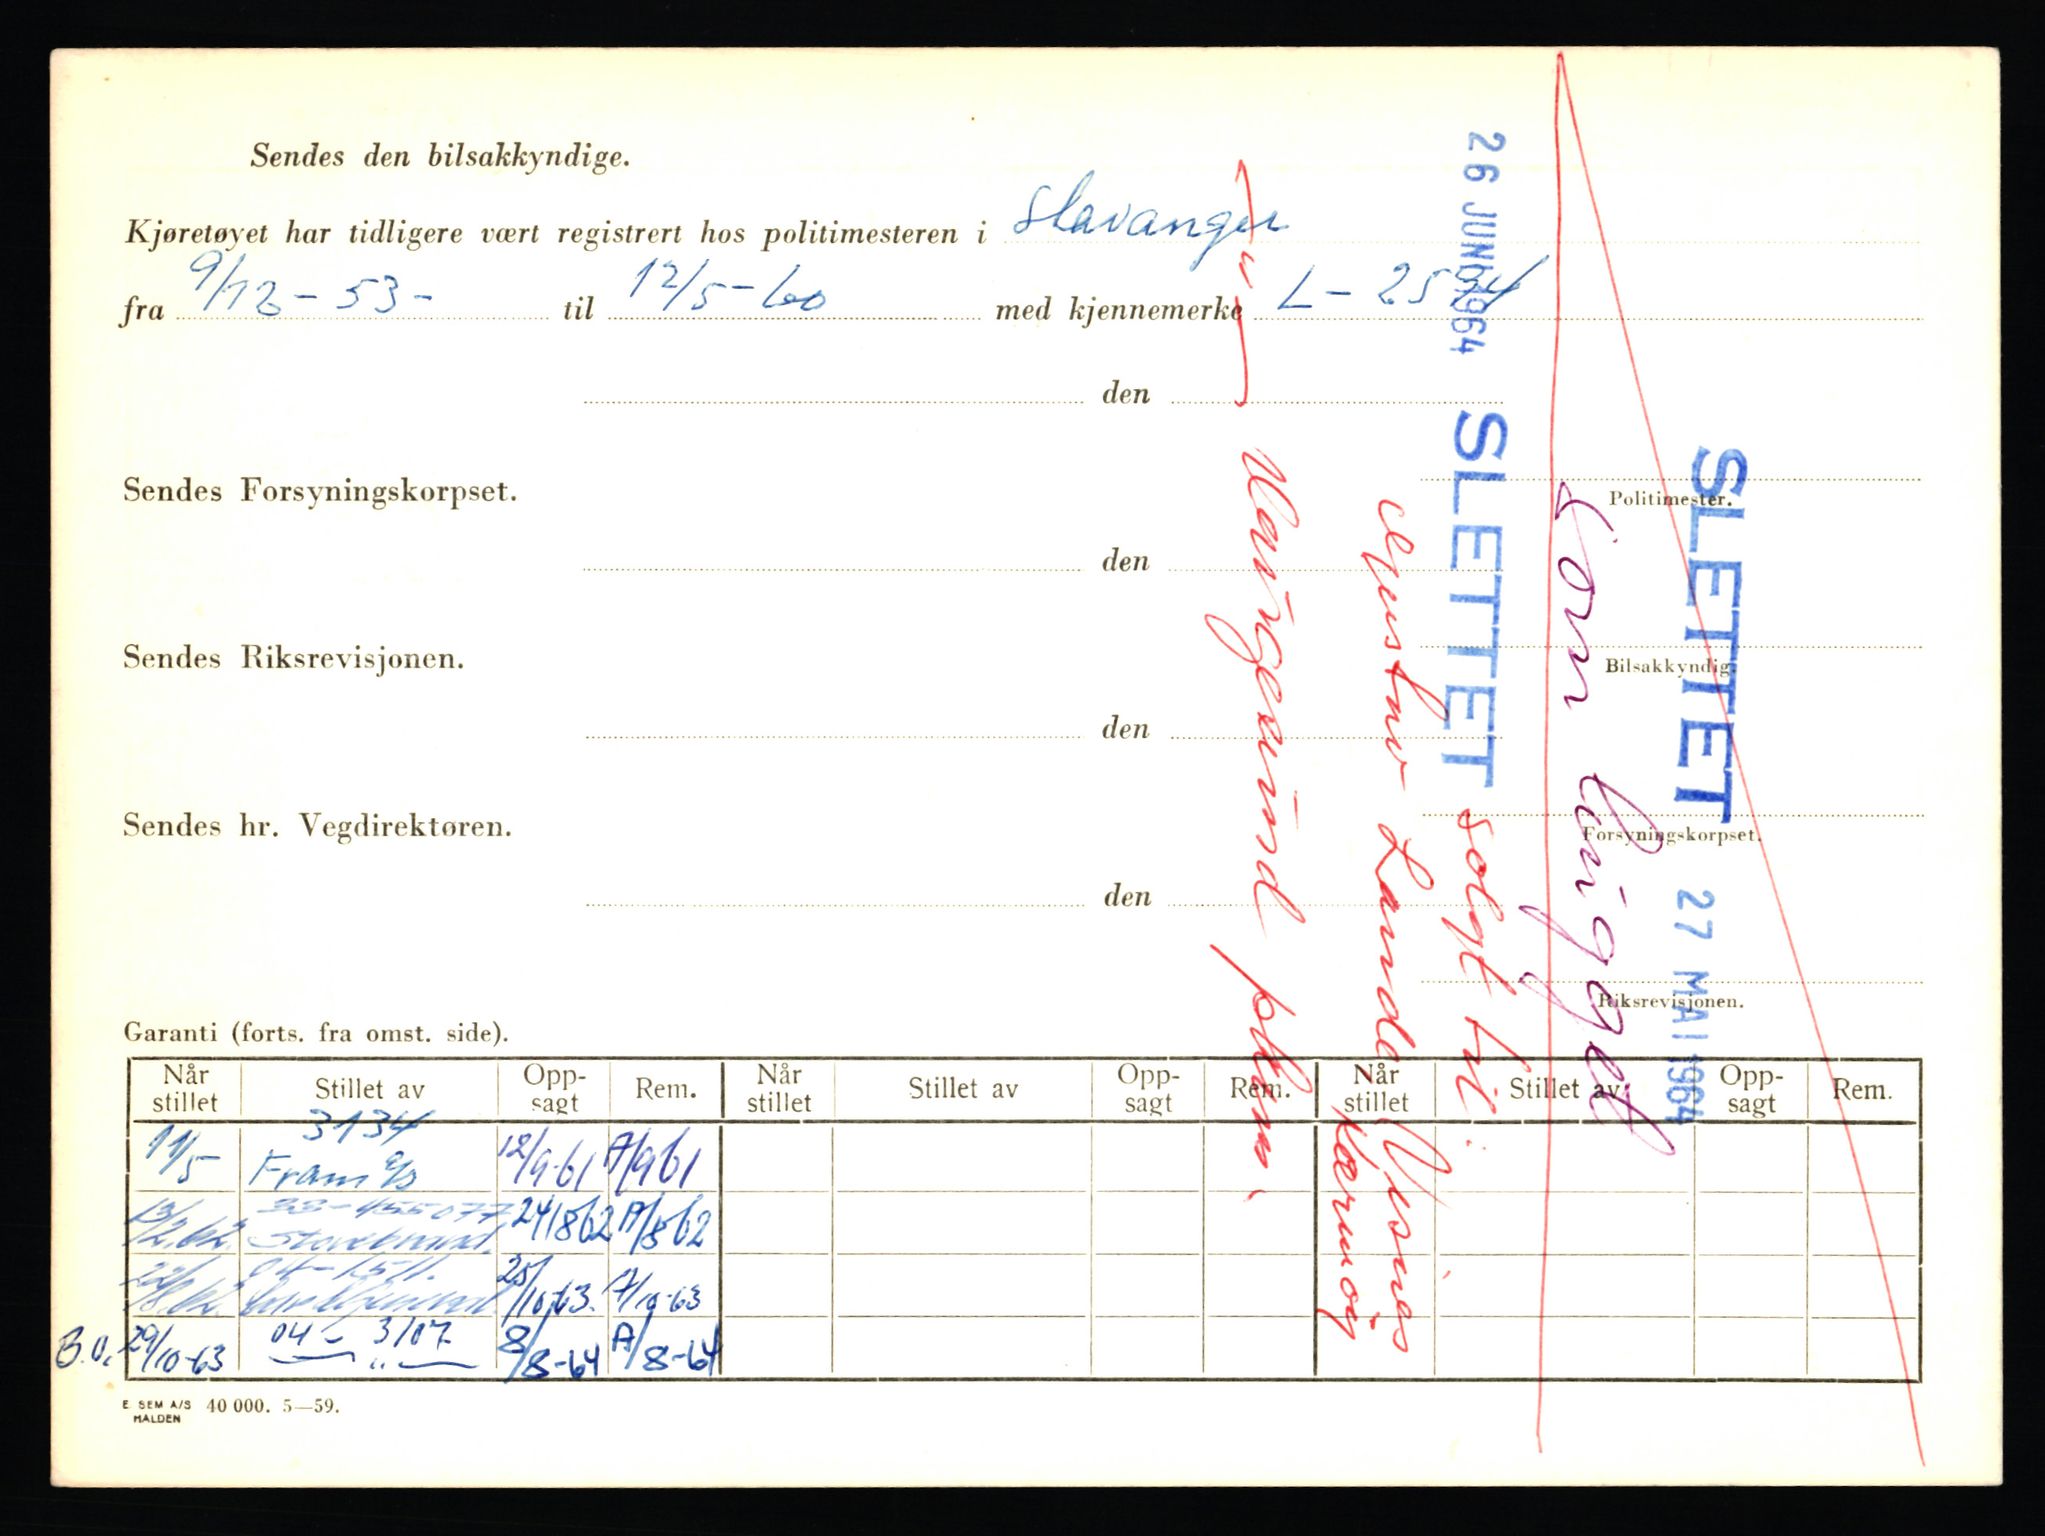 Sendes den bilsakkyndige.
Kjøretøyet har tidligere vært registrert hos politimesteren i Stavanger
fra 9/12-53- til 12/5-60 med kjennemerke L-2594
den
Politimester.
Sendes Forsyningskorpset.
den
Bilsakkyndig.
Sendes Riksrevisjonen.
den
Forsyningskorpset.
Sendes hr. Vegdirektøren.
den
Riksrevisjonen.
26 JUNI 1964 SLETTET
SLETTET 27 MAI 1964
Som
solgt til:
Gustav Lande, Visnes
Karmøy
Haugesund pkm.
Garanti (forts. fra omst. side).
Når stillet Stillet av Opp-sagt Rem. Når stillet Stillet av Opp-sagt Rem. Når stillet Stillet av Opp-sagt Rem.
3134
11/5 Fram 12/9-61 A/9 61
33-455077
13/2.62. Storebrand. 24/8 62 A/8 62
04-1511.
22/8.62. 25/10-63. A/10-63
04-3107
B.O. 29/10-63 — " — 8/8-64 A/8-64
E. SEM A/S HALDEN 40 000. 5—59.